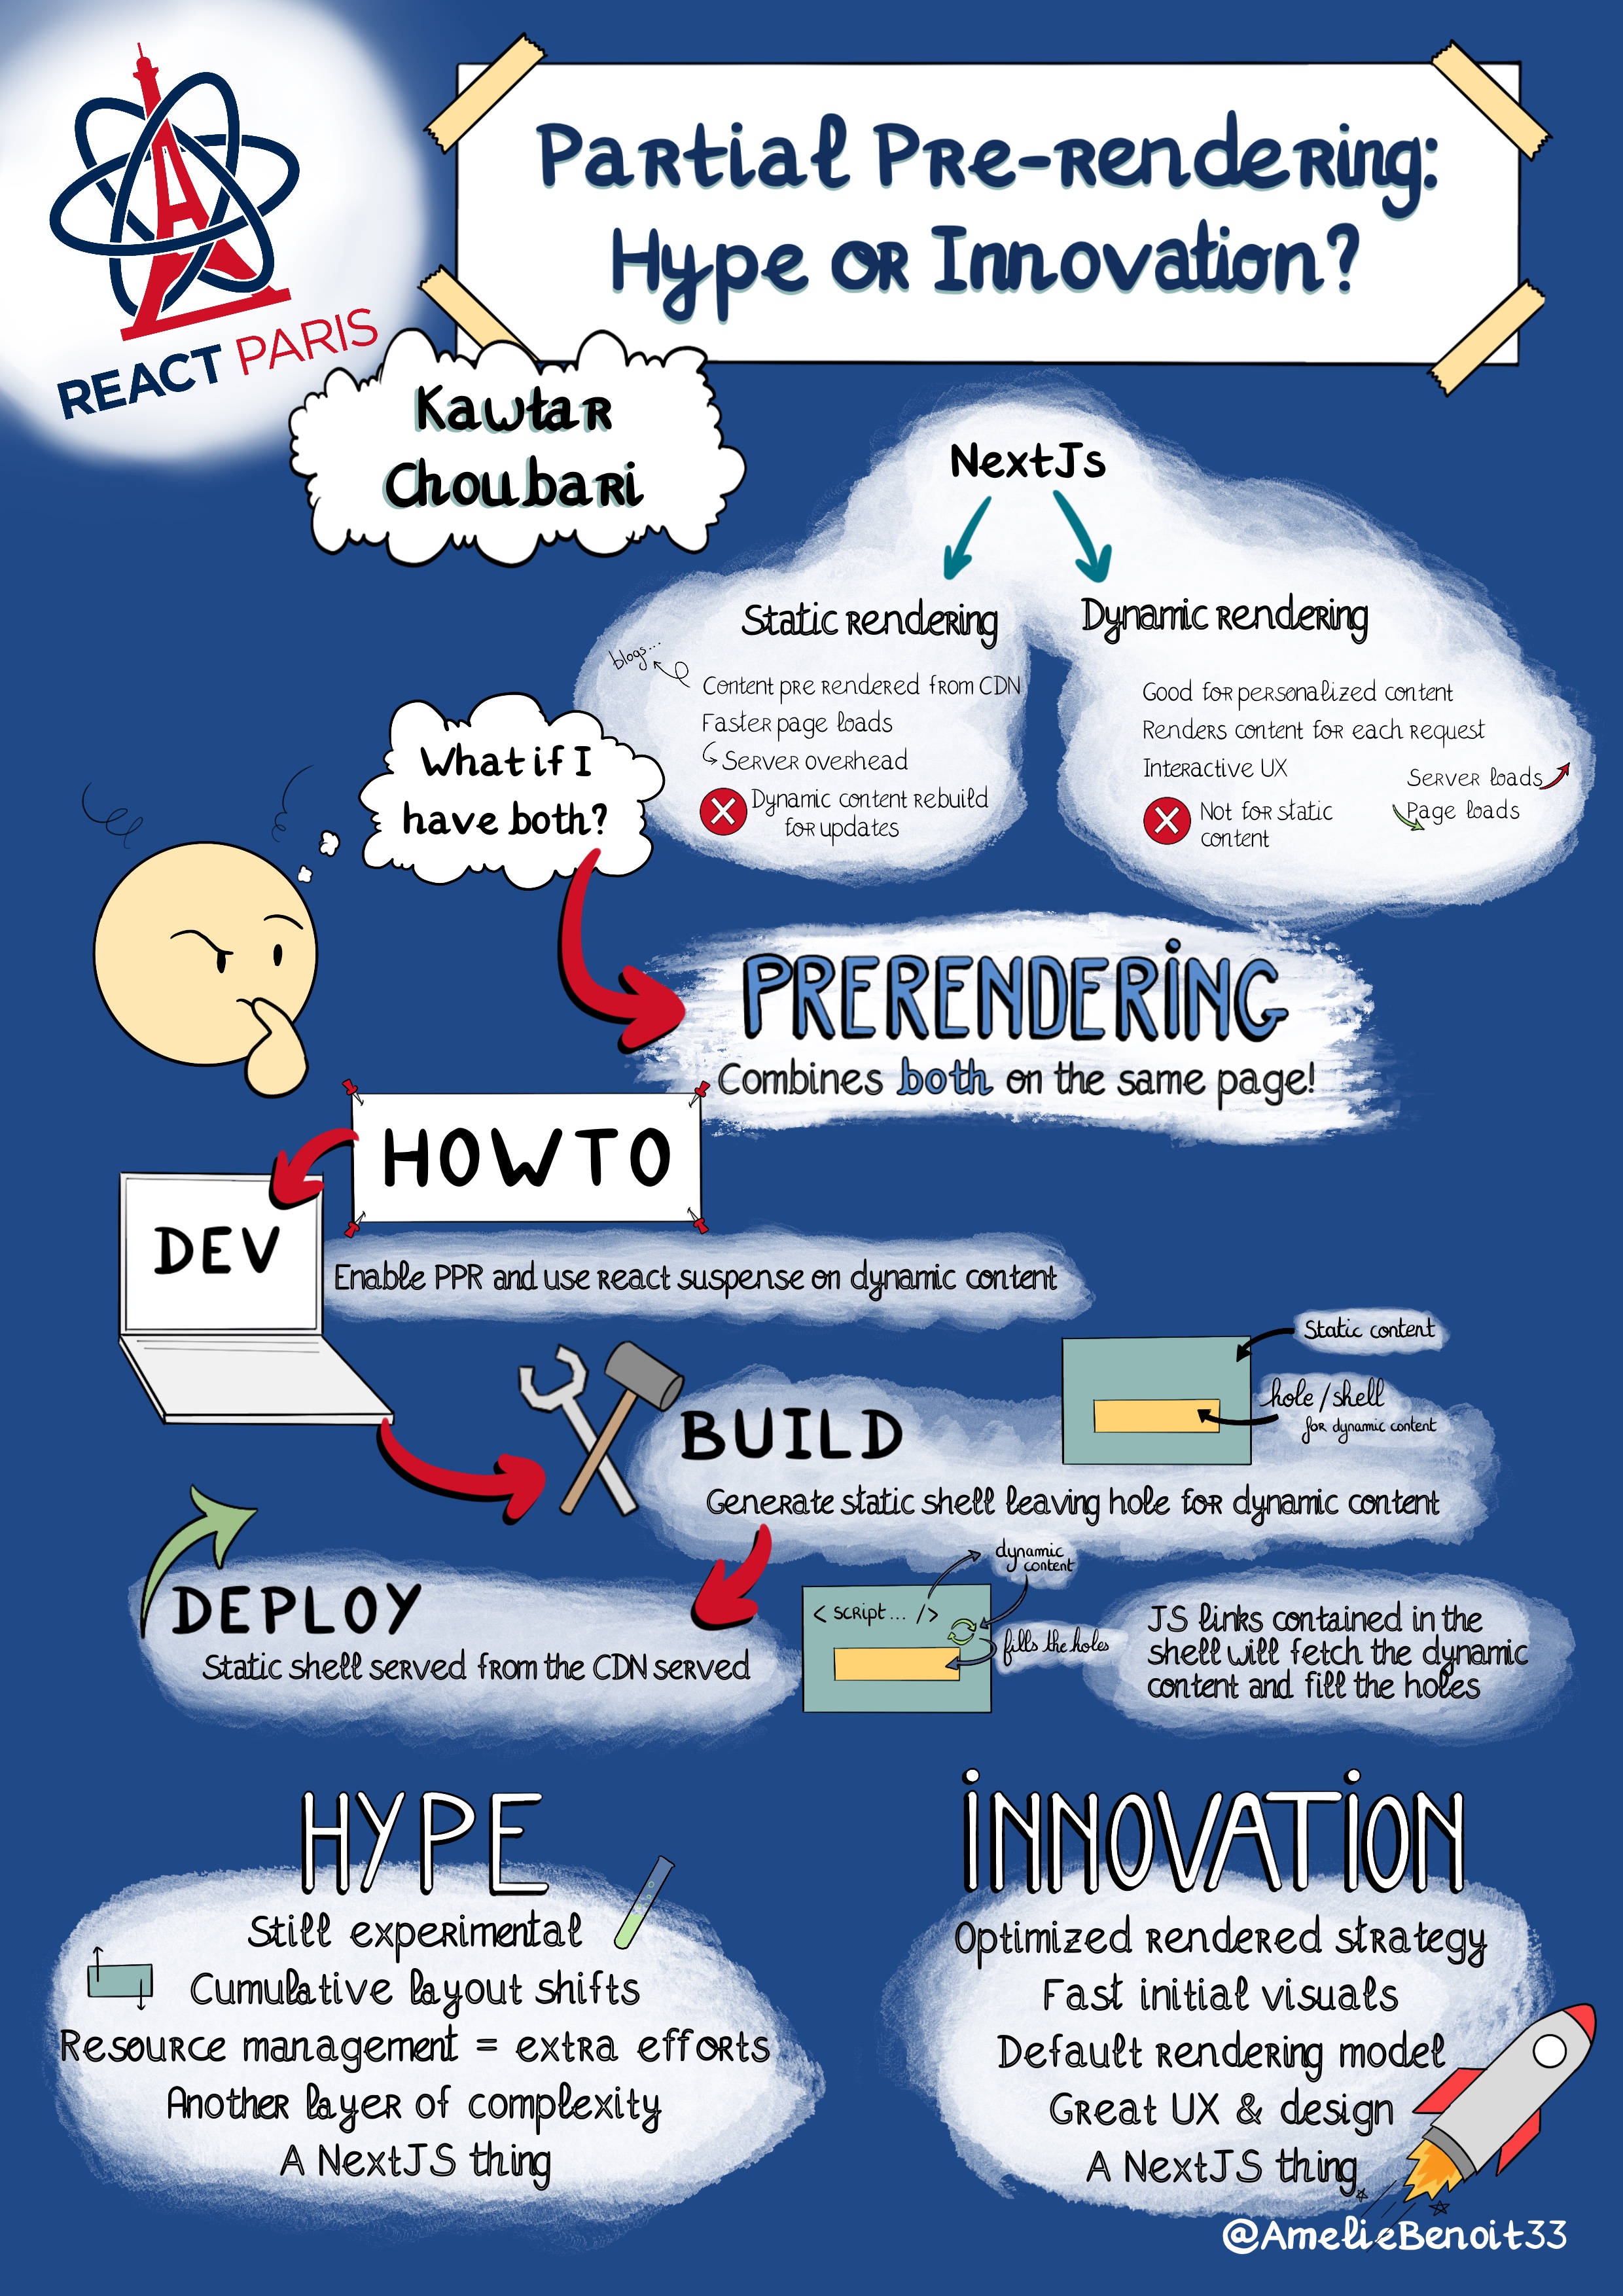 REACT PARIS
Partial Pre-rendering:
Hype or Innovation?
Kawtar
Choubari
NextJs
Static rendering
blogs...
Content pre rendered from CDN
Faster page loads
Server overhead
Dynamic content rebuild
for updates
Dynamic rendering
Good for personalized content
Renders content for each request
Interactive UX
Server loads
Page loads
Not for static
content
What if I
have both?
PRERENDERING
Combines both on the same page!
HOW TO
DEV
Enable PPR and use react suspense on dynamic content
BUILD
Static content
hole/shell
for dynamic content
Generate static shell leaving hole for dynamic content
DEPLOY
Static shell served from the CDN served
dynamic
content
< script... />
fills the holes
JS links contained in the
shell will fetch the dynamic
content and fill the holes
HYPE
Still experimental
Cumulative layout shifts
Resource management = extra efforts
Another layer of complexity
A NextJS thing
INNOVATION
Optimized rendered strategy
Fast initial visuals
Default rendering model
Great UX & design
A NextJS thing
@AmelieBenoit33